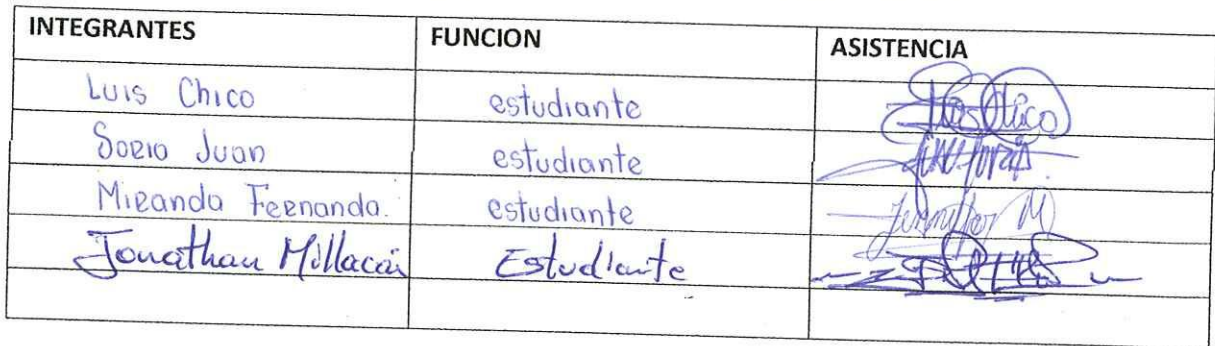 INTEGRANTES FUNCION ASISTENCIA
Luis Chico estudiante Luis Chico
Soria Juan estudiante
Miranda Fernanda. estudiante Jennifer M
Jonathan Estudiante